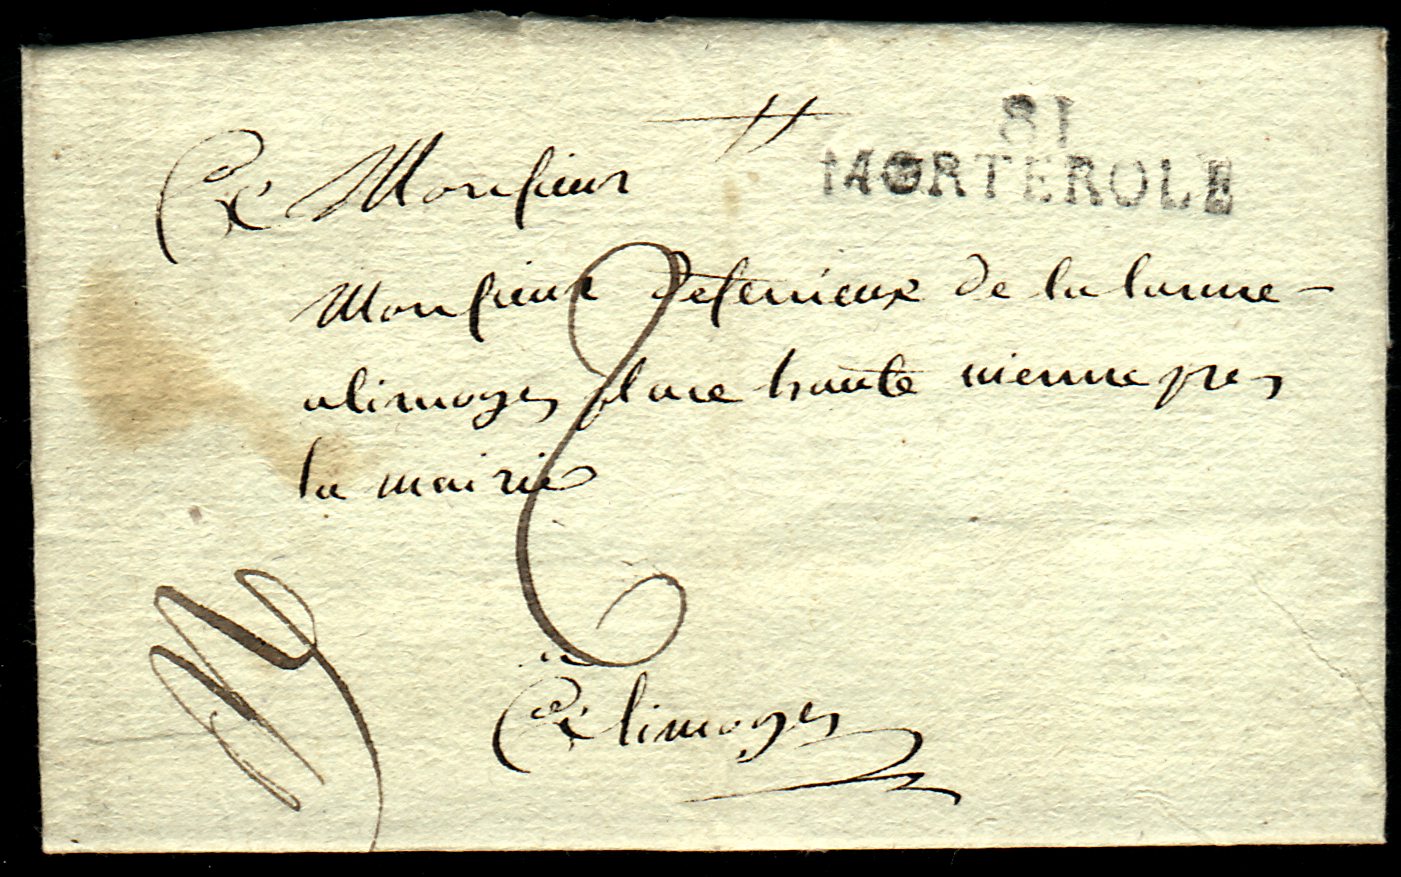 81
MORTEROLE
A Monsieur
Monsieur de la
a limoges place haute vienne pres
la mairie
2
A limoges